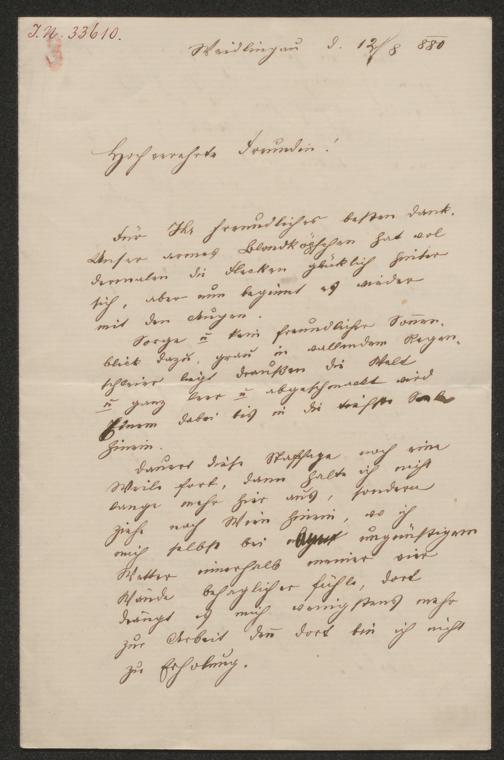 J.N. 33610.
Weidlingau d. 12/8 880
Hochverehrte Freundin!
Für Ihr freundliches besten Dank.
Unser armes Blondköpfchen hat wol
dermalen die Flecken glücklich hinter
sich, aber nun beginnt es wieder
mit den Augen.
Sorge u kein freundlicher Sonnen-
blick dazu, grau in wallendem Regen-
schleier liegt draußen die Welt
u ganz leer u abgeschmackt wird
Einem dabei bis in die tiefste Seele
hinein.
Dauert diese Staffage noch eine
Weile fort, dann halte ich nicht
lange mehr hier aus, sondern
ziehe nach Wien hinein, wo ich
mich selbst bei ungünstigem
Wetter innerhalb meiner vier
Wände behaglicher fühle, dort
drängt es mich wenigstens mehr
zur Arbeit denn dort bin ich nicht
zu Erholung.